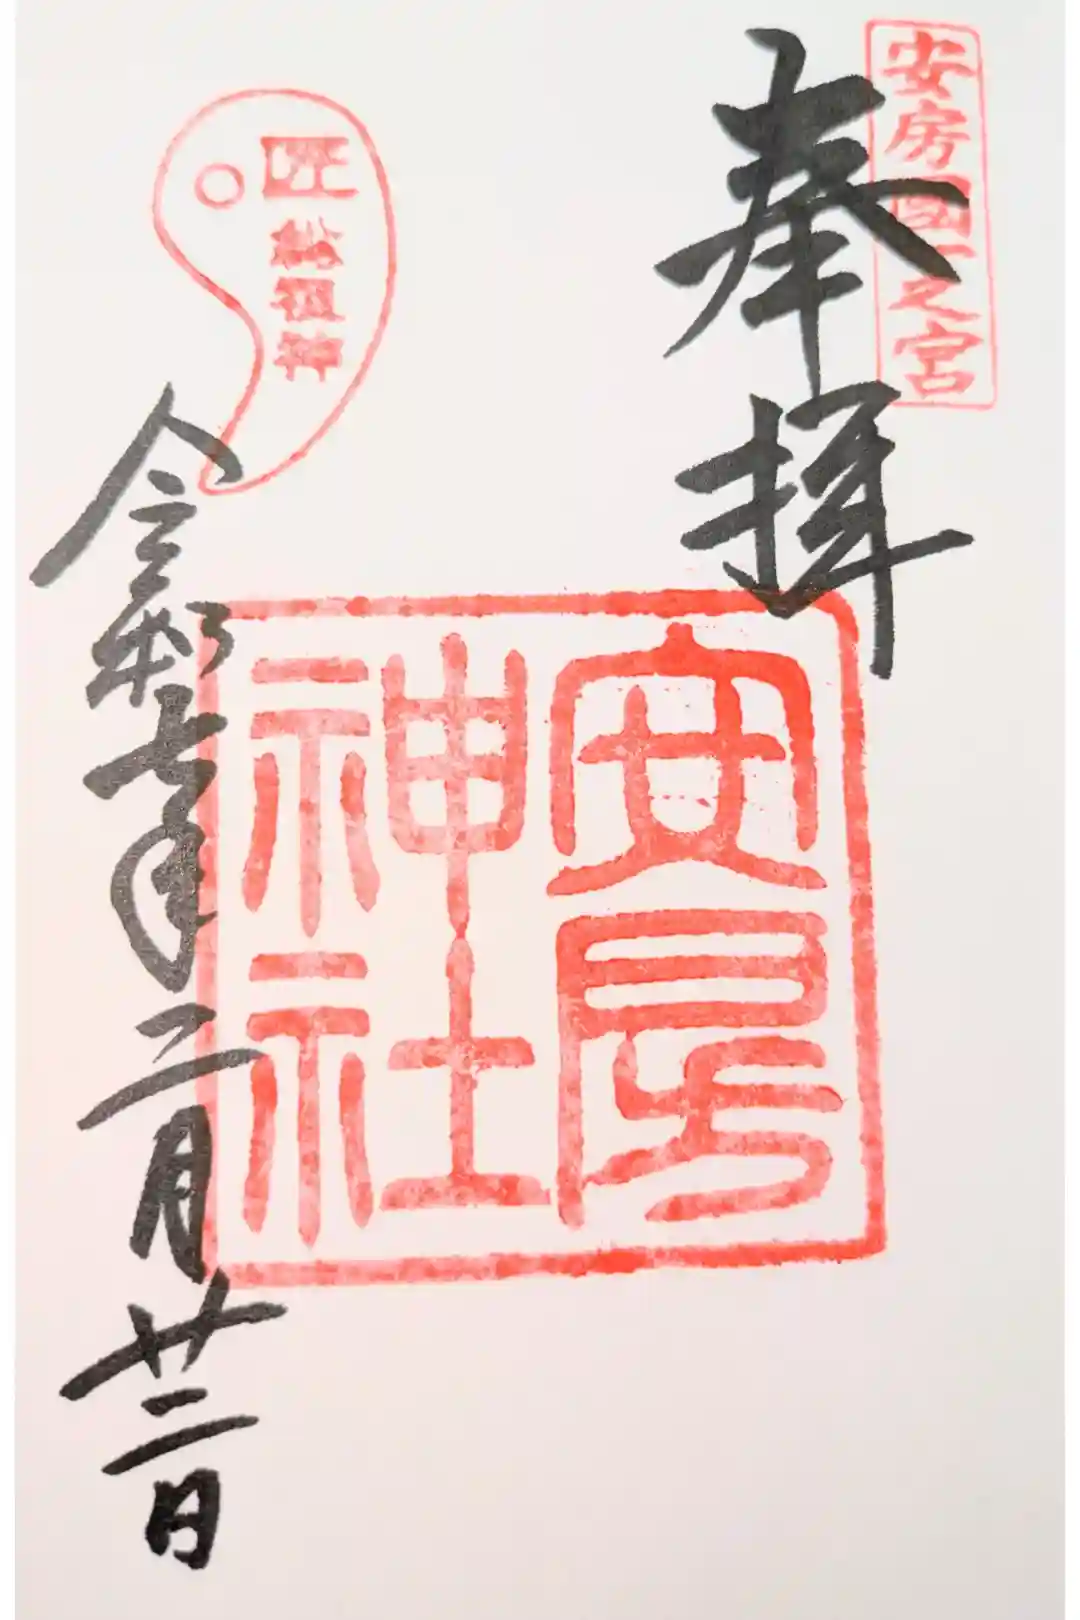 安房國一之宮
奉拝
安房
神社
匠総祖神
令和七年二月廿二日